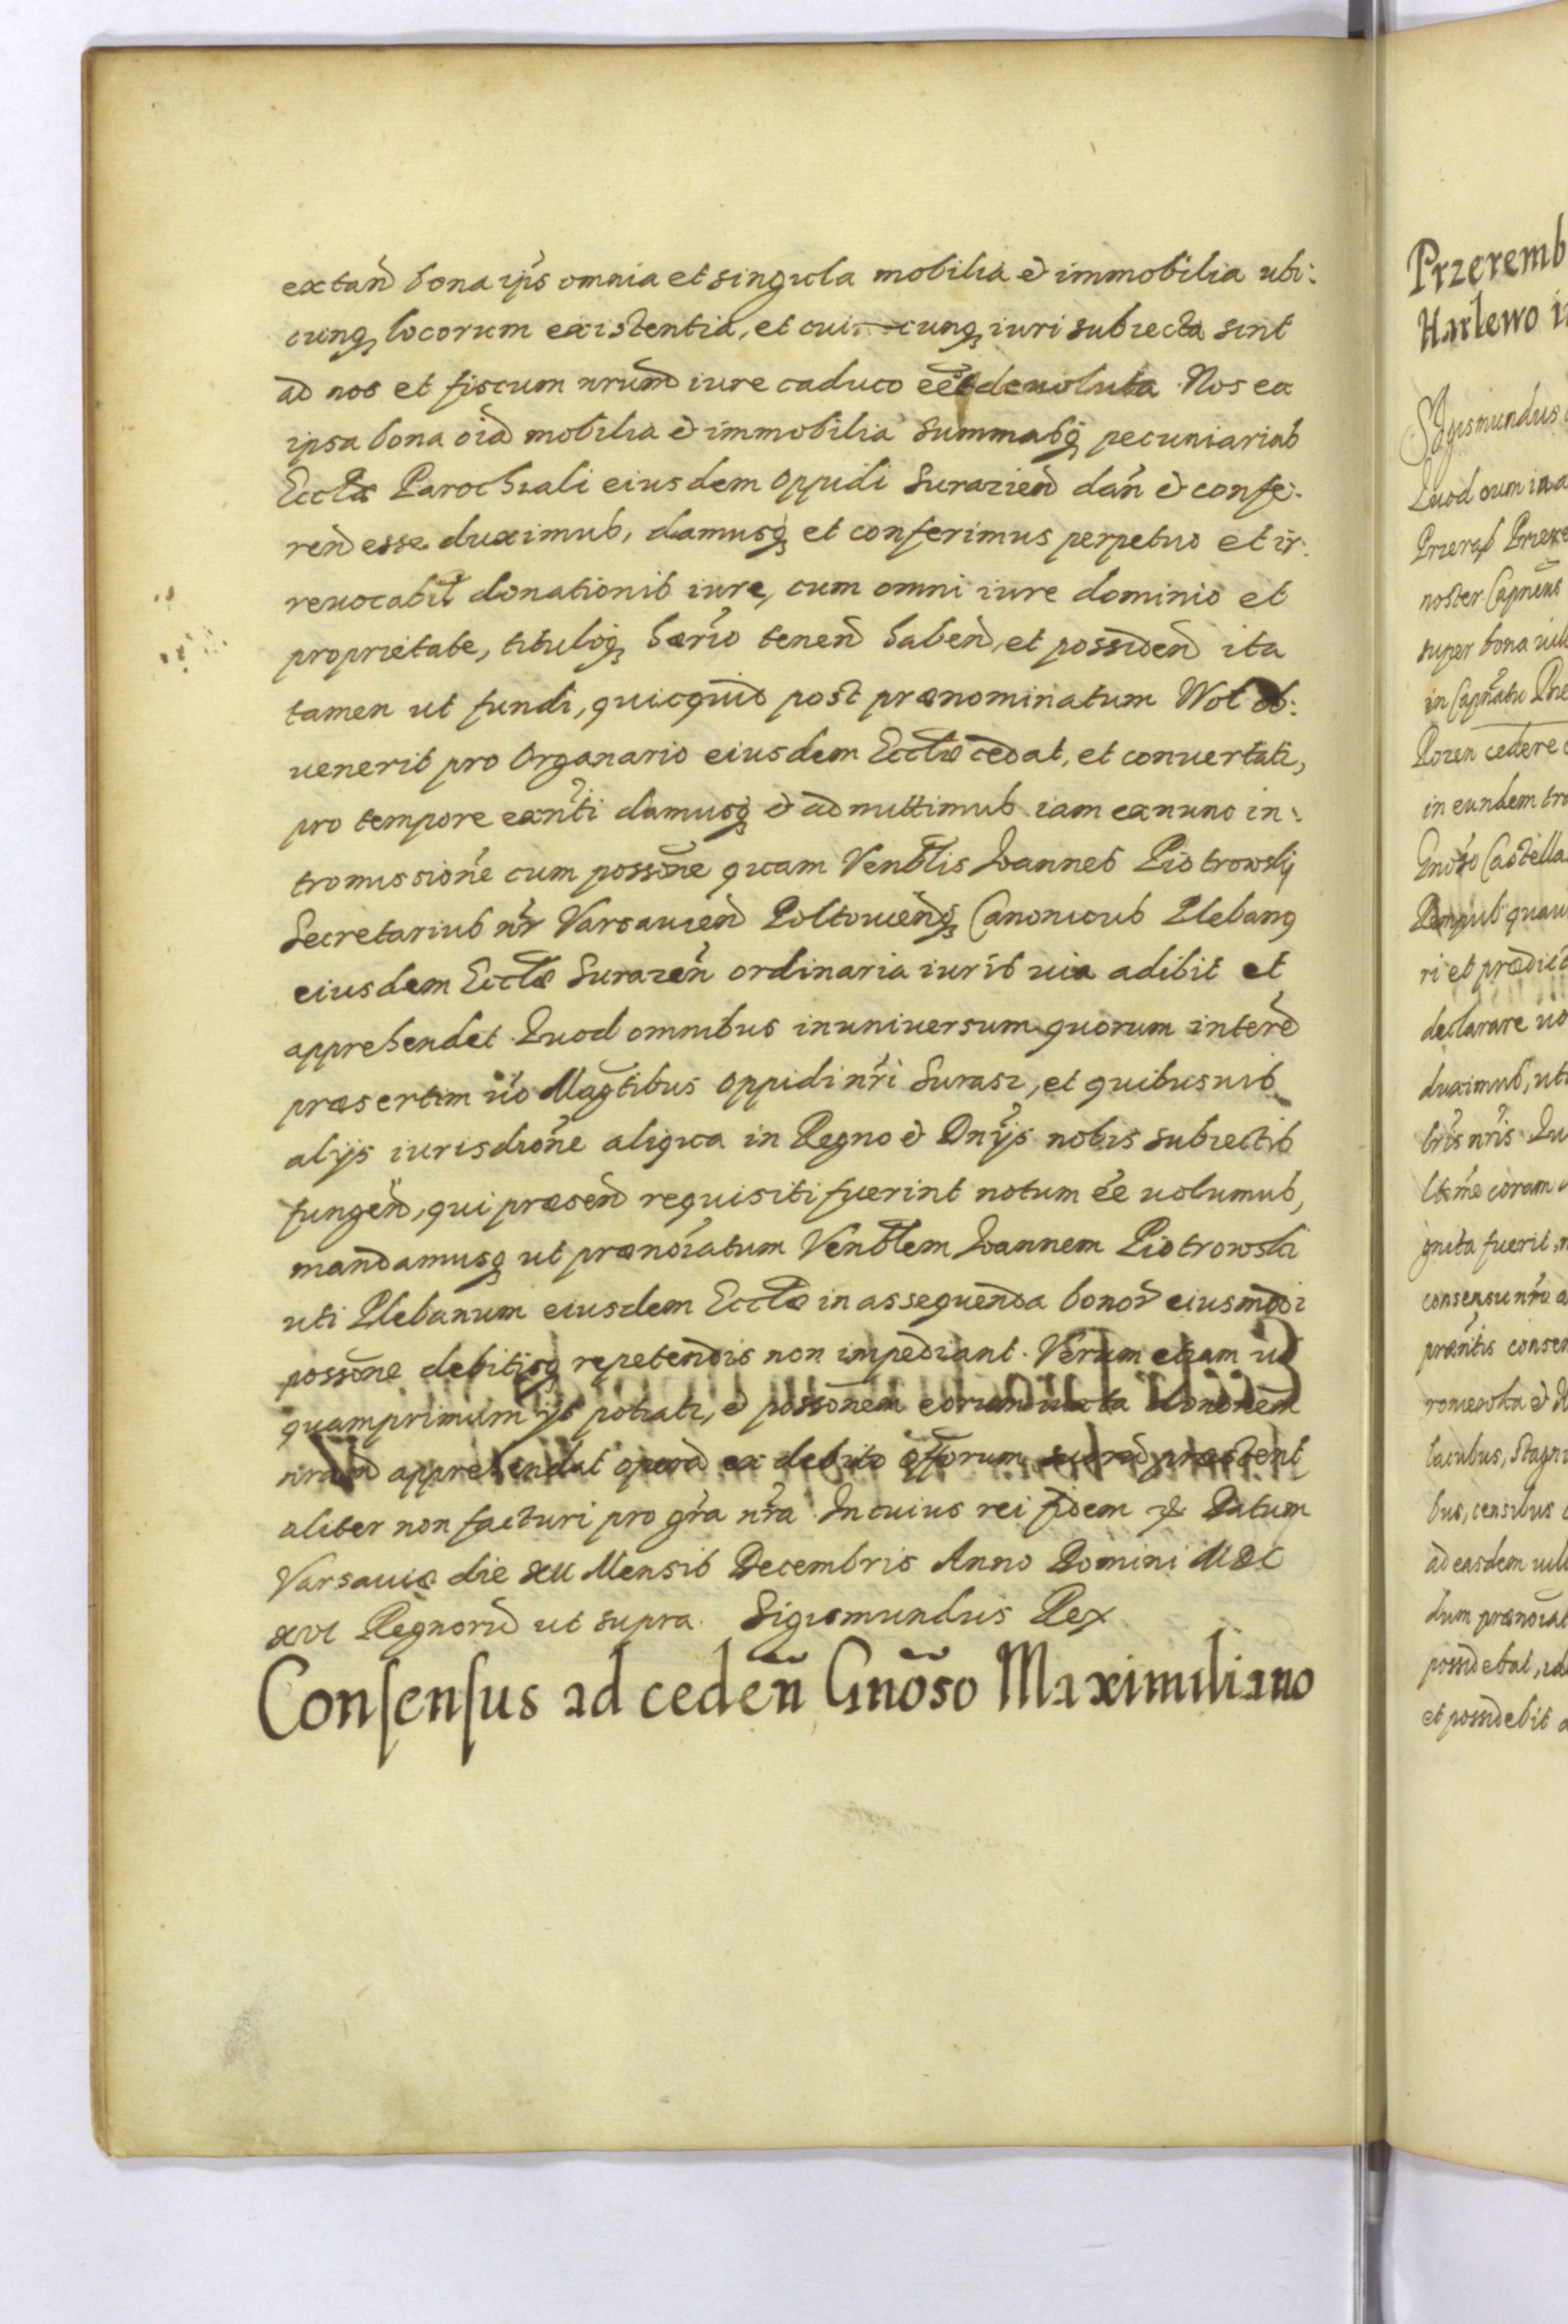 extan̄ bona ip̄s omnia et singula mobilia & immobilia ubi:
cunq̃ locorum existentia, et cui cunq̃ iuri subiecta sint
ad nos et fiscum nrum̄ iure caduco eē deuoluta Nos ea
ipsa bona oīa mobilia & immobilia summasq̃ pecuniarias
Ecclæ Parochiali eiusdem Oppidi Surazien̄ dan̄ & confe:
ren̄ esse duximus, damusq̃ et conferimus perpetuo et ir:
reuocabil donationis iure, cum omni iure dominio et
proprietate, tituloq̃ hærīo tenen̄ haben̄ et possiden̄ ita
tamen ut fundi, quicquid post prænominatum Wol ob:
uenerit pro Organario eiusdem Ecclæ cedat, et conuertatr,
pro tempore exn̄ti damusq̃ & admittimus iam ex nunc in:
tromissionē cum possōne quam Venbl̄is Ioannes Piotrowskj
Secretarius nr̄ Varsauien̄ Poltouien̄q̃ Canonicus Plebanq
eiusdem Ecclæ Surazen̄ ordinaria iuris uia adibit et
apprehendet Quod omnibus in uniuersum quorum interē
præsertim uō Magtībus Oppidi nr̄i Surasz, et quibusuis
alijs iurisdiōne aliqua in Regno & Dn̄ijs nobis subiectis
fungen̄, qui præsen̄ requisiti fuerint notum eē uolumus,
mandamusq̃ ut prænoīatum Venbl̄em Ioannem Piotrowski
uti Plebanum eiusdem Ecclæ in assequenda bonor̄ eiusmodi
possōne debitisq̃ repetendis non impediant. Verum etiam ut
quamprimum ijs potiatr, & possōnem eorum iuxta dononem̄
nram̄ apprehendat opera ex debito offorum suor̄ præstent
aliter non facturi pro gr̄a nr̄a In cuius rei fidem & Datum
Varsauiæ die XII Mensis Decembris Anno Domini MDC
XVI Regnorū ut supra. Sigismundus Rex
Consensus ad ceden̄ Gnōso Maximiliano
Przeremb
Harlewo i
Sigismundus
Quod cum in a
noster Capneus
super bona uill
Pozen cedere
in eundem tra
Gnōso Castella
ri et prædic
declarare uo
duximus, uti
br̄is nr̄is Qu
coram
gnita fuerit, n
consensu nr̄o a
præn̄tis consen
lacubus, stagni
bus, censibus
ad easdem uill
dum prænoīat
possidebat, id
et possidebit a